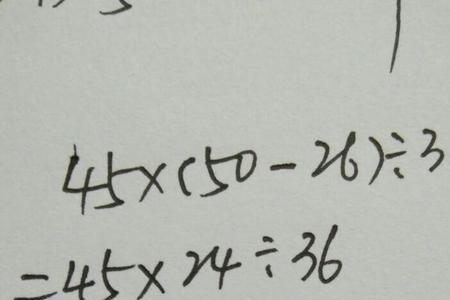 45×(50-26)÷3
=45×24÷36